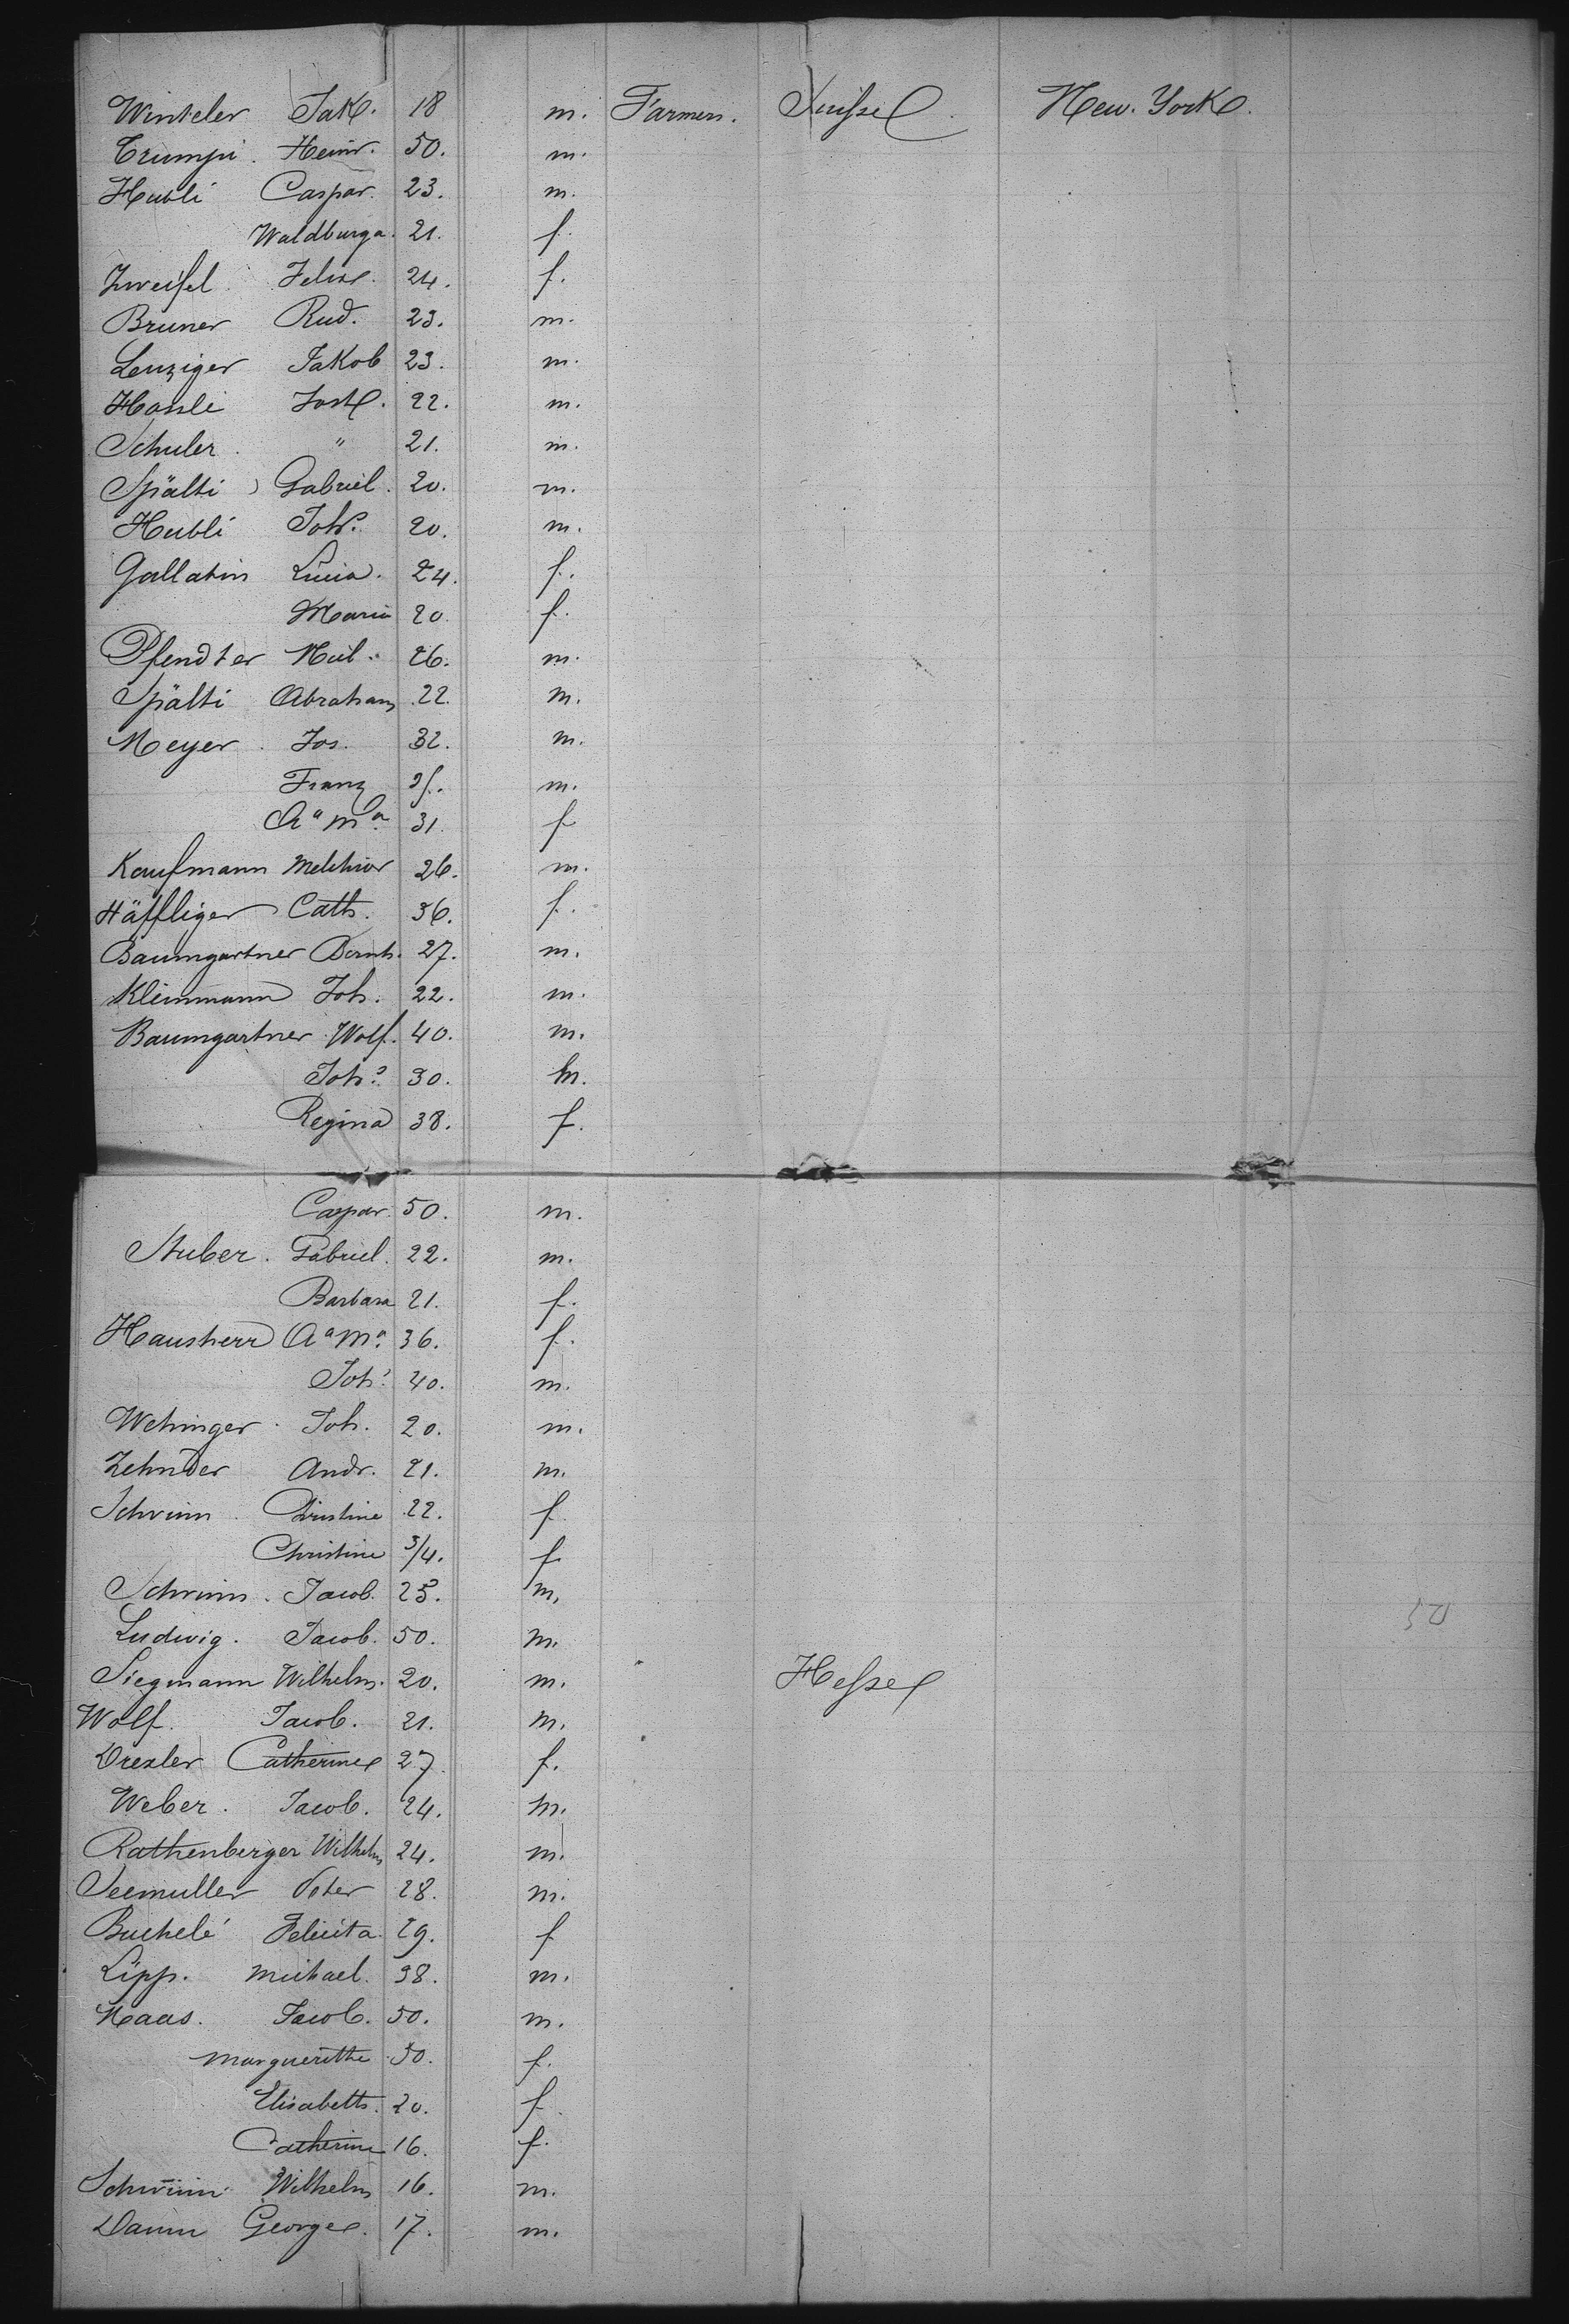 Winteler Jak. 18 m. Farmers. Suisse New-York.
Trumpi. Heinr. 50. m.
Hubli Caspar. 23. m.
Waldburga. 21. f.
Zweifel. Felix. 24. f.
Bruner Rud. 23. m.
Lenziger Jakob 23. m.
Hösli Jost. 22. m.
Schuler. " 21. m.
Spälti Gabriel. 20. m.
Hubli Joh. 20. m.
Gallatin Lucia. 24. f.
Maria 20. f.
Pfendter 26. m.
Spälti Abraham 22. m.
Meyer. Jos. 32. m.
Franz m.
Aa Ma. 31. f
Kaufmann Melchior 26. m.
Häffliger Cath. 36. f.
Baumgartner Bernh. 27. m.
Kleinmann Joh. 22. m.
Baumgartner Wolf. 40. m.
Joh. 30. m.
Regina 38. f.
Caspar. 50. m.
Stuber. Gabriel. 22. m.
Barbara 21. f.
Hausherr Aa Ma. 36. f.
Joh. 40. m.
Wehinger. Joh. 20. m.
Zehnder Andr. 21. m.
Schwinn. Christine 22. f
Christine 3/4. f
Schwinn. Jacob. 25. m.
Ludwig. Jacob. 50. m.
Siegmann Wilhelm. 20. m. Hesse
Wolf. Jacob. 21. m.
Drexler Catherine 27. f.
Weber. Jacob. 24. m.
Rathenberger Wilhelm 24. m.
Seemuller Peter 28. m.
Buchelé Felicita. 29. f
Lipp. Michael. 38. m.
Haas. Jacob. 50. m.
Marguerithe 50. f.
Elisabeth. 20. f.
Catherine 16. f.
Schwinn Wilhelm 16. m.
Damm George. 17. m.